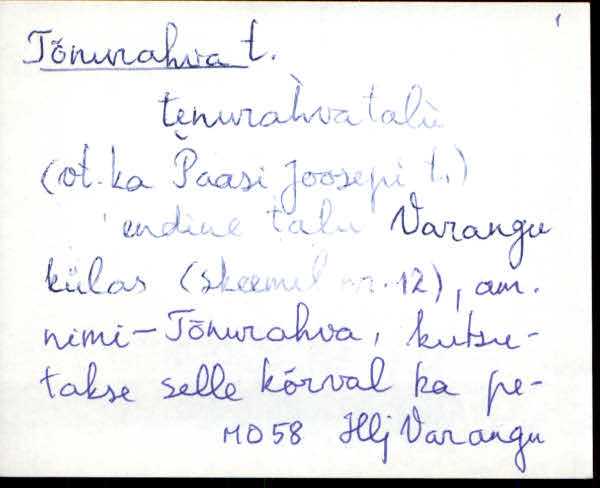 1
Tõnurahva t.
te̮nuràhvatalù
(vt. ka Paasi Joosepi t.)
endine talu Varangu
külas (skeemil nr. 12), am.
nimi – Tõnurahva, kutsu-
takse selle kõrval ka pe-
MD58 Hlj Varangu